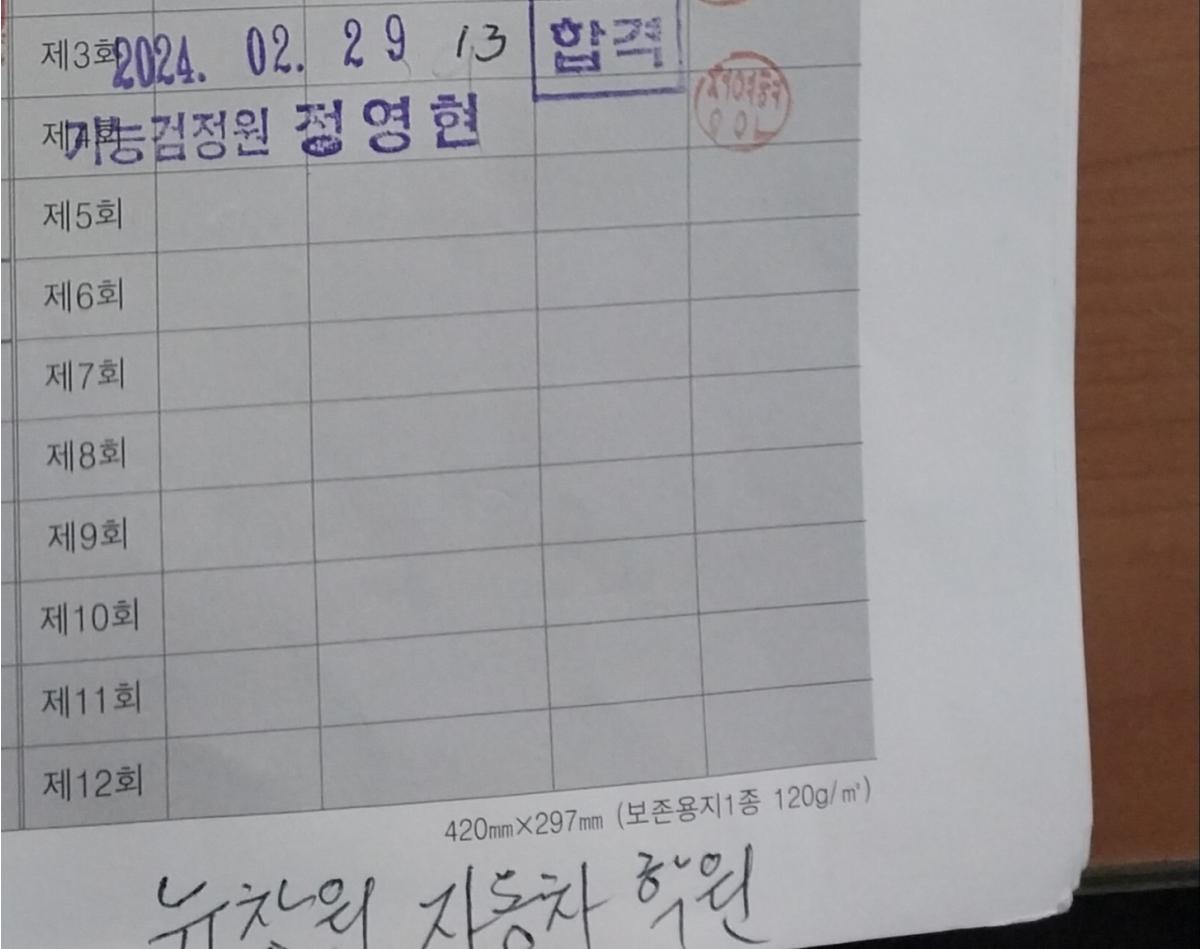 제3회 2024. 02. 29 13 합격
제4회 기능검정원 정영현
제5회
제6회
제7회
제8회
제9회
제10회
제11회
제12회
420mm×297mm (보존용지1종 120g/㎡)
뉴창원 자동차 학원